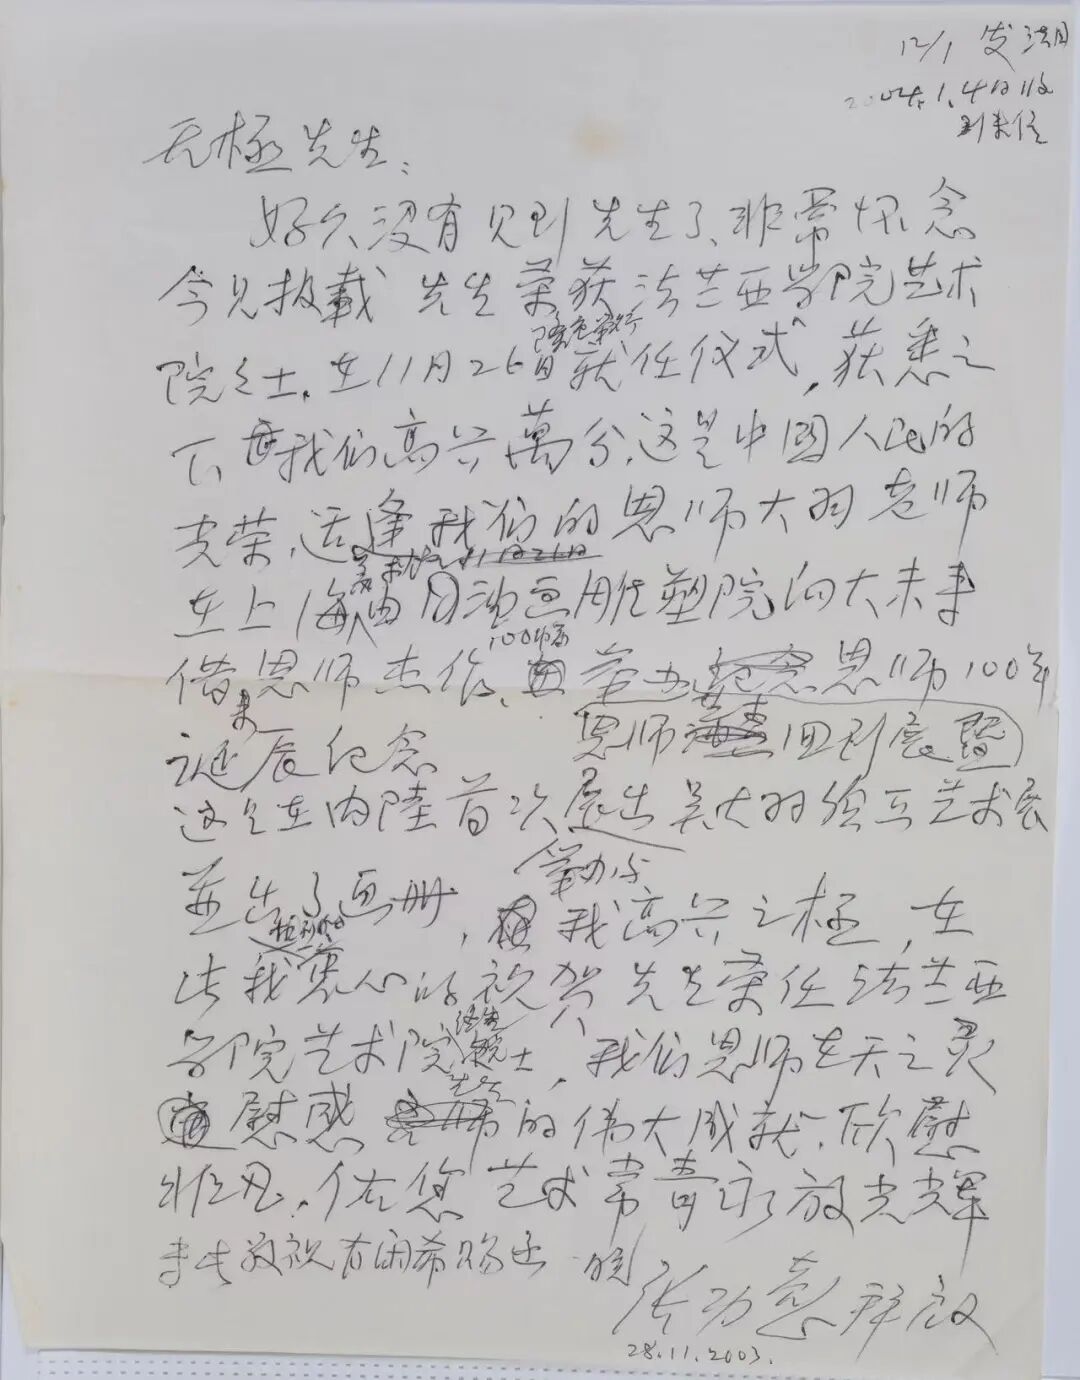 12/1 发法国
2004.1.4日收
到来信
无极先生：
好久没有见到先生了、非常怀念
今见报载 先生荣获法兰西学院艺术
隆重举行
院院士，在11月26日就任仪式，获悉之
下 我们高兴萬分，这是中国人民的
光荣，适逢我们的恩师大羽老师
11月26日
在上海 由 油画雕塑院向大未来
借恩师杰作，举办纪念恩师100年
100幅
来 恩师 回到展暨
诞辰纪念
这是在内陸首次展出吴大羽绘画艺术展
举办
並出了画册，我高兴之极，在
此我衷心的祝贺先生荣任法兰西
学院艺术院 院士，我们恩师在天之灵
终生
先生
慰感 的伟大成就，欣慰
佑您艺术常青永放光光辉
敬祝 有闲希赐
张功慤拜啟
28.11.2003.